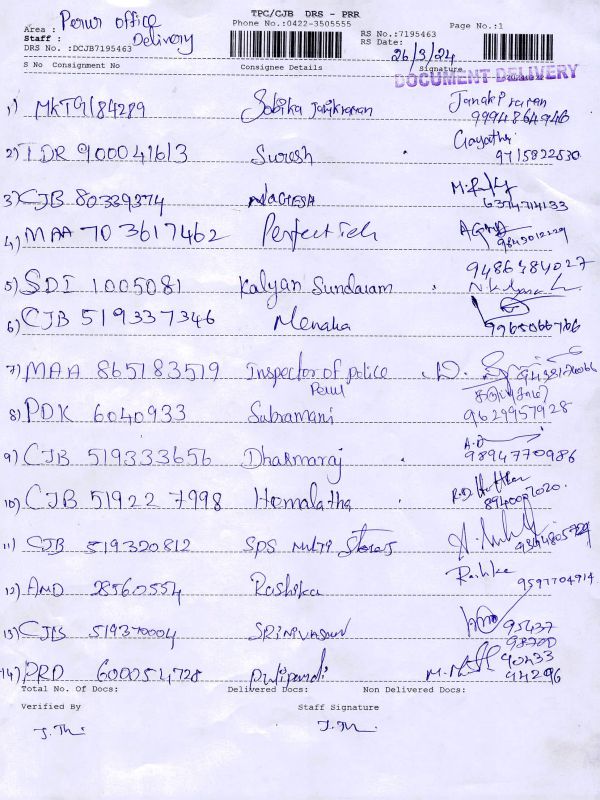 TPC/CJB DRS - PRR
Perur office
Area :
Phone No.:0422-3505555
Page No.:1
Staff : Delivery
RS No.:7195463
DRS No. :DCJB7195463
RS Date: 26/3/24
S No Consignment No Consignee Details Signature
DOCUMENT DELIVERY
1) MKT9184289 Sobika Janikiraman Janakiraman
9994864946
Gayathri
2) IDR 900041613 Suresh 9715822530
3) CJB 80339374 NAGESH
6374714133
4) MAA 703617462 Perfect Tech
9843012229
9486484027
5) SDI 1005081 Kalyan Sundaram
6) CJB 519337346 Menaka
9965066766
7) MAA 865183519 Inspector of police
Perur
8) PDK 6040933 Subramani 9629957928
9) CJB 519333656 Dharmaraj 9894770986
10) CJB 519227998 Hemalatha
11) CJB 519320812 SPS Multy Stores
Rashika
12) AMD 28560554 Rashika 9597704914
13) CJB 519370004 SRINIVASAN 95437
98700
14) PRD 600054728 Pulipandi 90433
94296
Total No. Of Docs: Delivered Docs: Non Delivered Docs:
Verified By Staff Signature